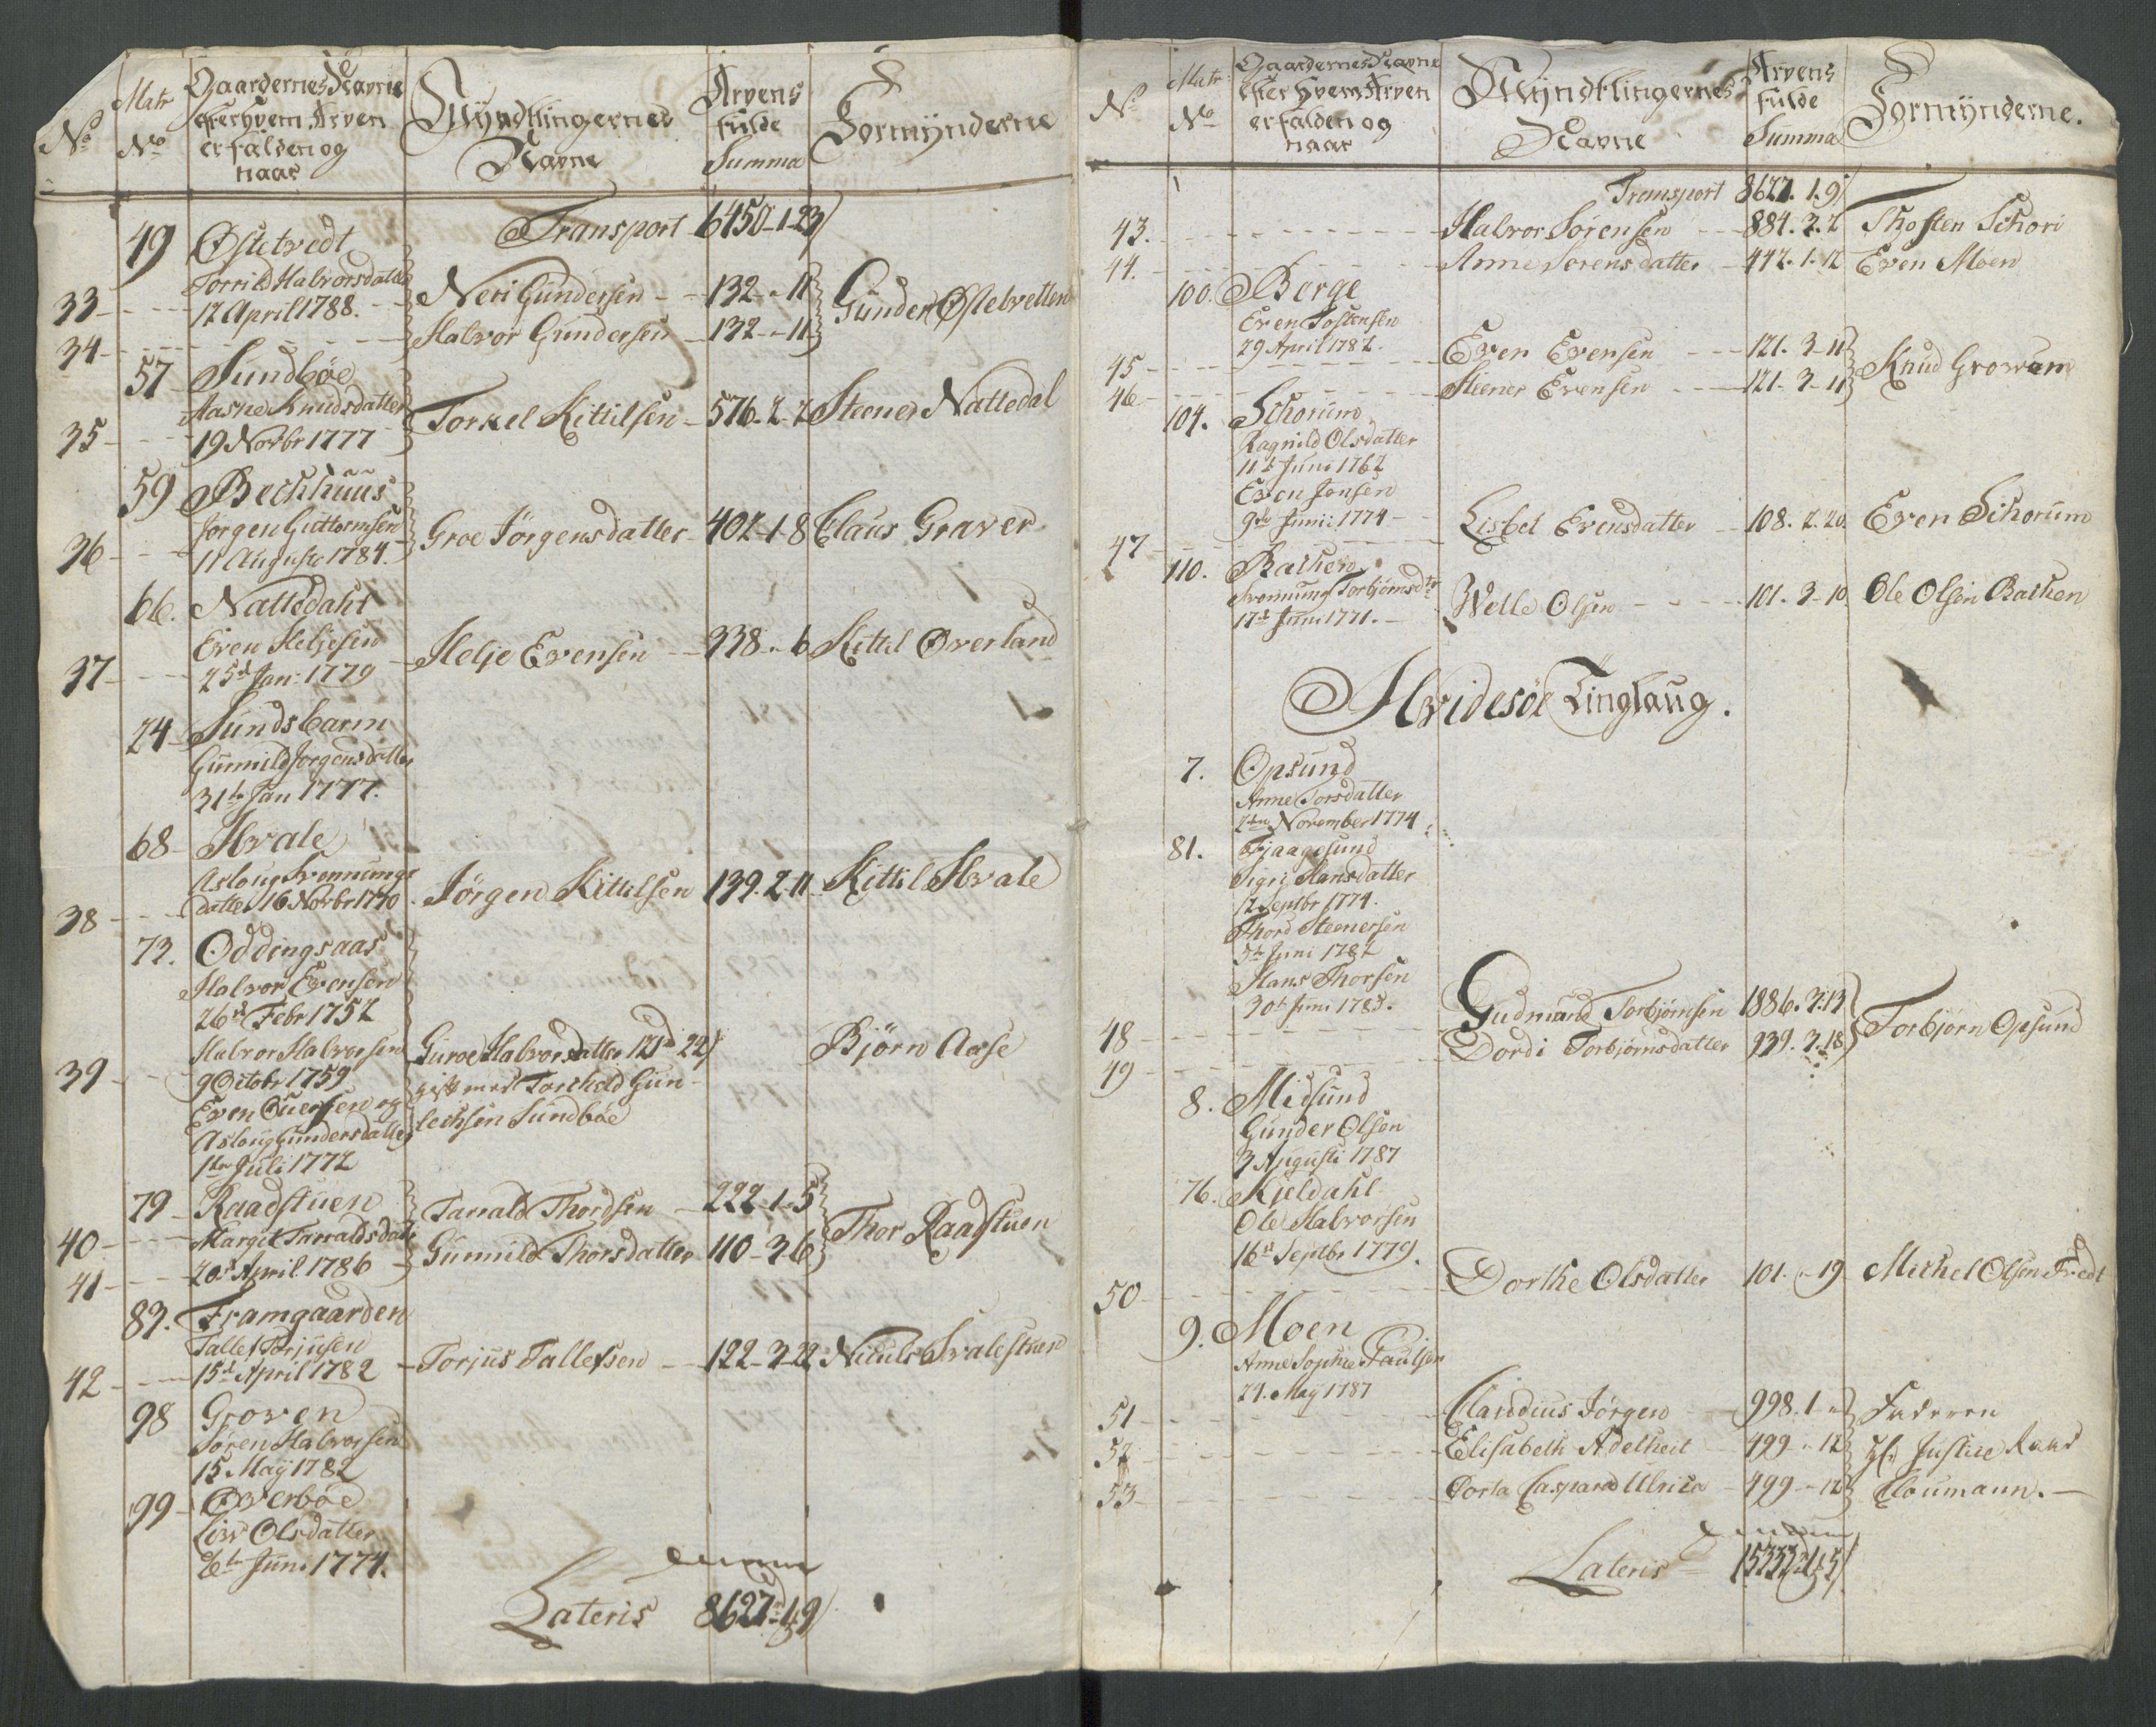 No
Matr No
Gaardernes Navne
efter hvem Arven
er falden og
naar
Myndtlingernes
Navne
Arvens
fulde
Summa
Formynderne
Transport 6450-1-23
49 Østetvedt
Torrild Halvorsdatter
33 - 12 April 1788. - Neri Gundersen - 132 - - 11 Gunder Østetvetten
34 - Halvor Gundersen 132 - - 11
57 Sundbøe
Aasne Knudsdatter
35 - 19 Novbr 1777 Torkel Kittilsen - 576. 2. 2 Steener Nattedal
59 Bechhuus
Jørgen Guttormsen
36 - 11 Augusti 1784. Groe Jörgensdatter - 402-1-8 Claus Graver
66. Nattedahl
Even Heljesen
37 - 25d Jan: 1779 - Helje Evensen - 338 - - 6 Kittel Øverland
24 - Sundsbarm
Gunnild Jorgensdatter
31te Jan 1777.
68 - Hvale
Asloug Svennungs
38 - datter 16 Novbr 1770 - Jörgen Kittilsen 139. 2-11 Kittil Hvale
73. Oddingsaas
Halvor Evensen
26d Febr 1752
Halvor Halvorsen Guroe Halvorsdatter 121 22 Björn Aase
39 - 9 Octobr 1759 gift med Torchild Gun-
Even og lechsen Sundbøe
Asloug Gundersdatter
1ten Juli 1772
79 - Raadstuen Tarrald Thordsen - 222-1-5
40 - Margit Tarraldsdatr Gunnild Thorsdatter 110-3 6 Thor Raadstuen
41 - 20d April 1786
83. Framgaarden
Tallef Torjusen
42 - 15d April 1782 - Torjus Tallefsen - 122-3-22 Niculs Svalestuen
98 Groven
Søren Halvorsen
15 May 1782
99 - Øverbøe
Liw Olsdatter
6te Juni 1774.
Lateris 8627-1-9
No
Matr: No
Gaardernes Navne
efter hvem Arven
er falden og
naar
Myndtlingernes
Navne
Arvens
fulde
Summa
Formynderne.
Transport 8627. 1. 9
43. - Halvor Sörensen - 884. 3. 2 Thosten Schori
44. - Anne Sorensdatter - 442. 1. 12 Even Moen
100. Borge
Even Tostensen
29 April 1782.
45 - Even Evensen - 121. 3-11 Knud Growum
46 - Steener Evensen - 121. 3-11
104. Schorum
Ragnild Olsdatter
11te Juni 1762
Even Jonsen
9de Junii 1774 - Lisbet Evensdatter - 108. 2. 20. Even Schorum
47 -
110. Bakken
Svennung Torbjørnsdr
17de Juni 1771. - Welle Olsen - 101. 3-10. Ole Olsen Bakken
Hvidesöe Tinglaug.
7. Opsund
Anne Torsdatter
2den November 1774
81. Tjaagesund
Sigri Hansdatter
12 Septbr 1774.
Thord Steenersen
5te Juni 1782
Hans Thorsen
30te Juni 1783.
48 - Gudmund Torbjörnsen 1886. 3. 13 Torbjørn Opsund
49 - Dordi Torbjörnsdatter 939. 3. 18
8. Midsund
Gunder Olsen
3 Augusti 1787
76. Kjeldahl
Ole Halvorsen
16d Septbr 1779.
50 - Dorthe Olsdatter 101. - 19 Michel Olsen Tvedt
9. Moen
Anne Sophie Paulsen
24. May 1787
51 - Claudius Jörgen 998. 1 - Faderen
52 - Elisabeth Adelheit - 499 - 12 Hr Justice Raad
53 - Dorta Caspara Ulrica - 499 - 12 Cloumann. -
Lateris 15332-1-5